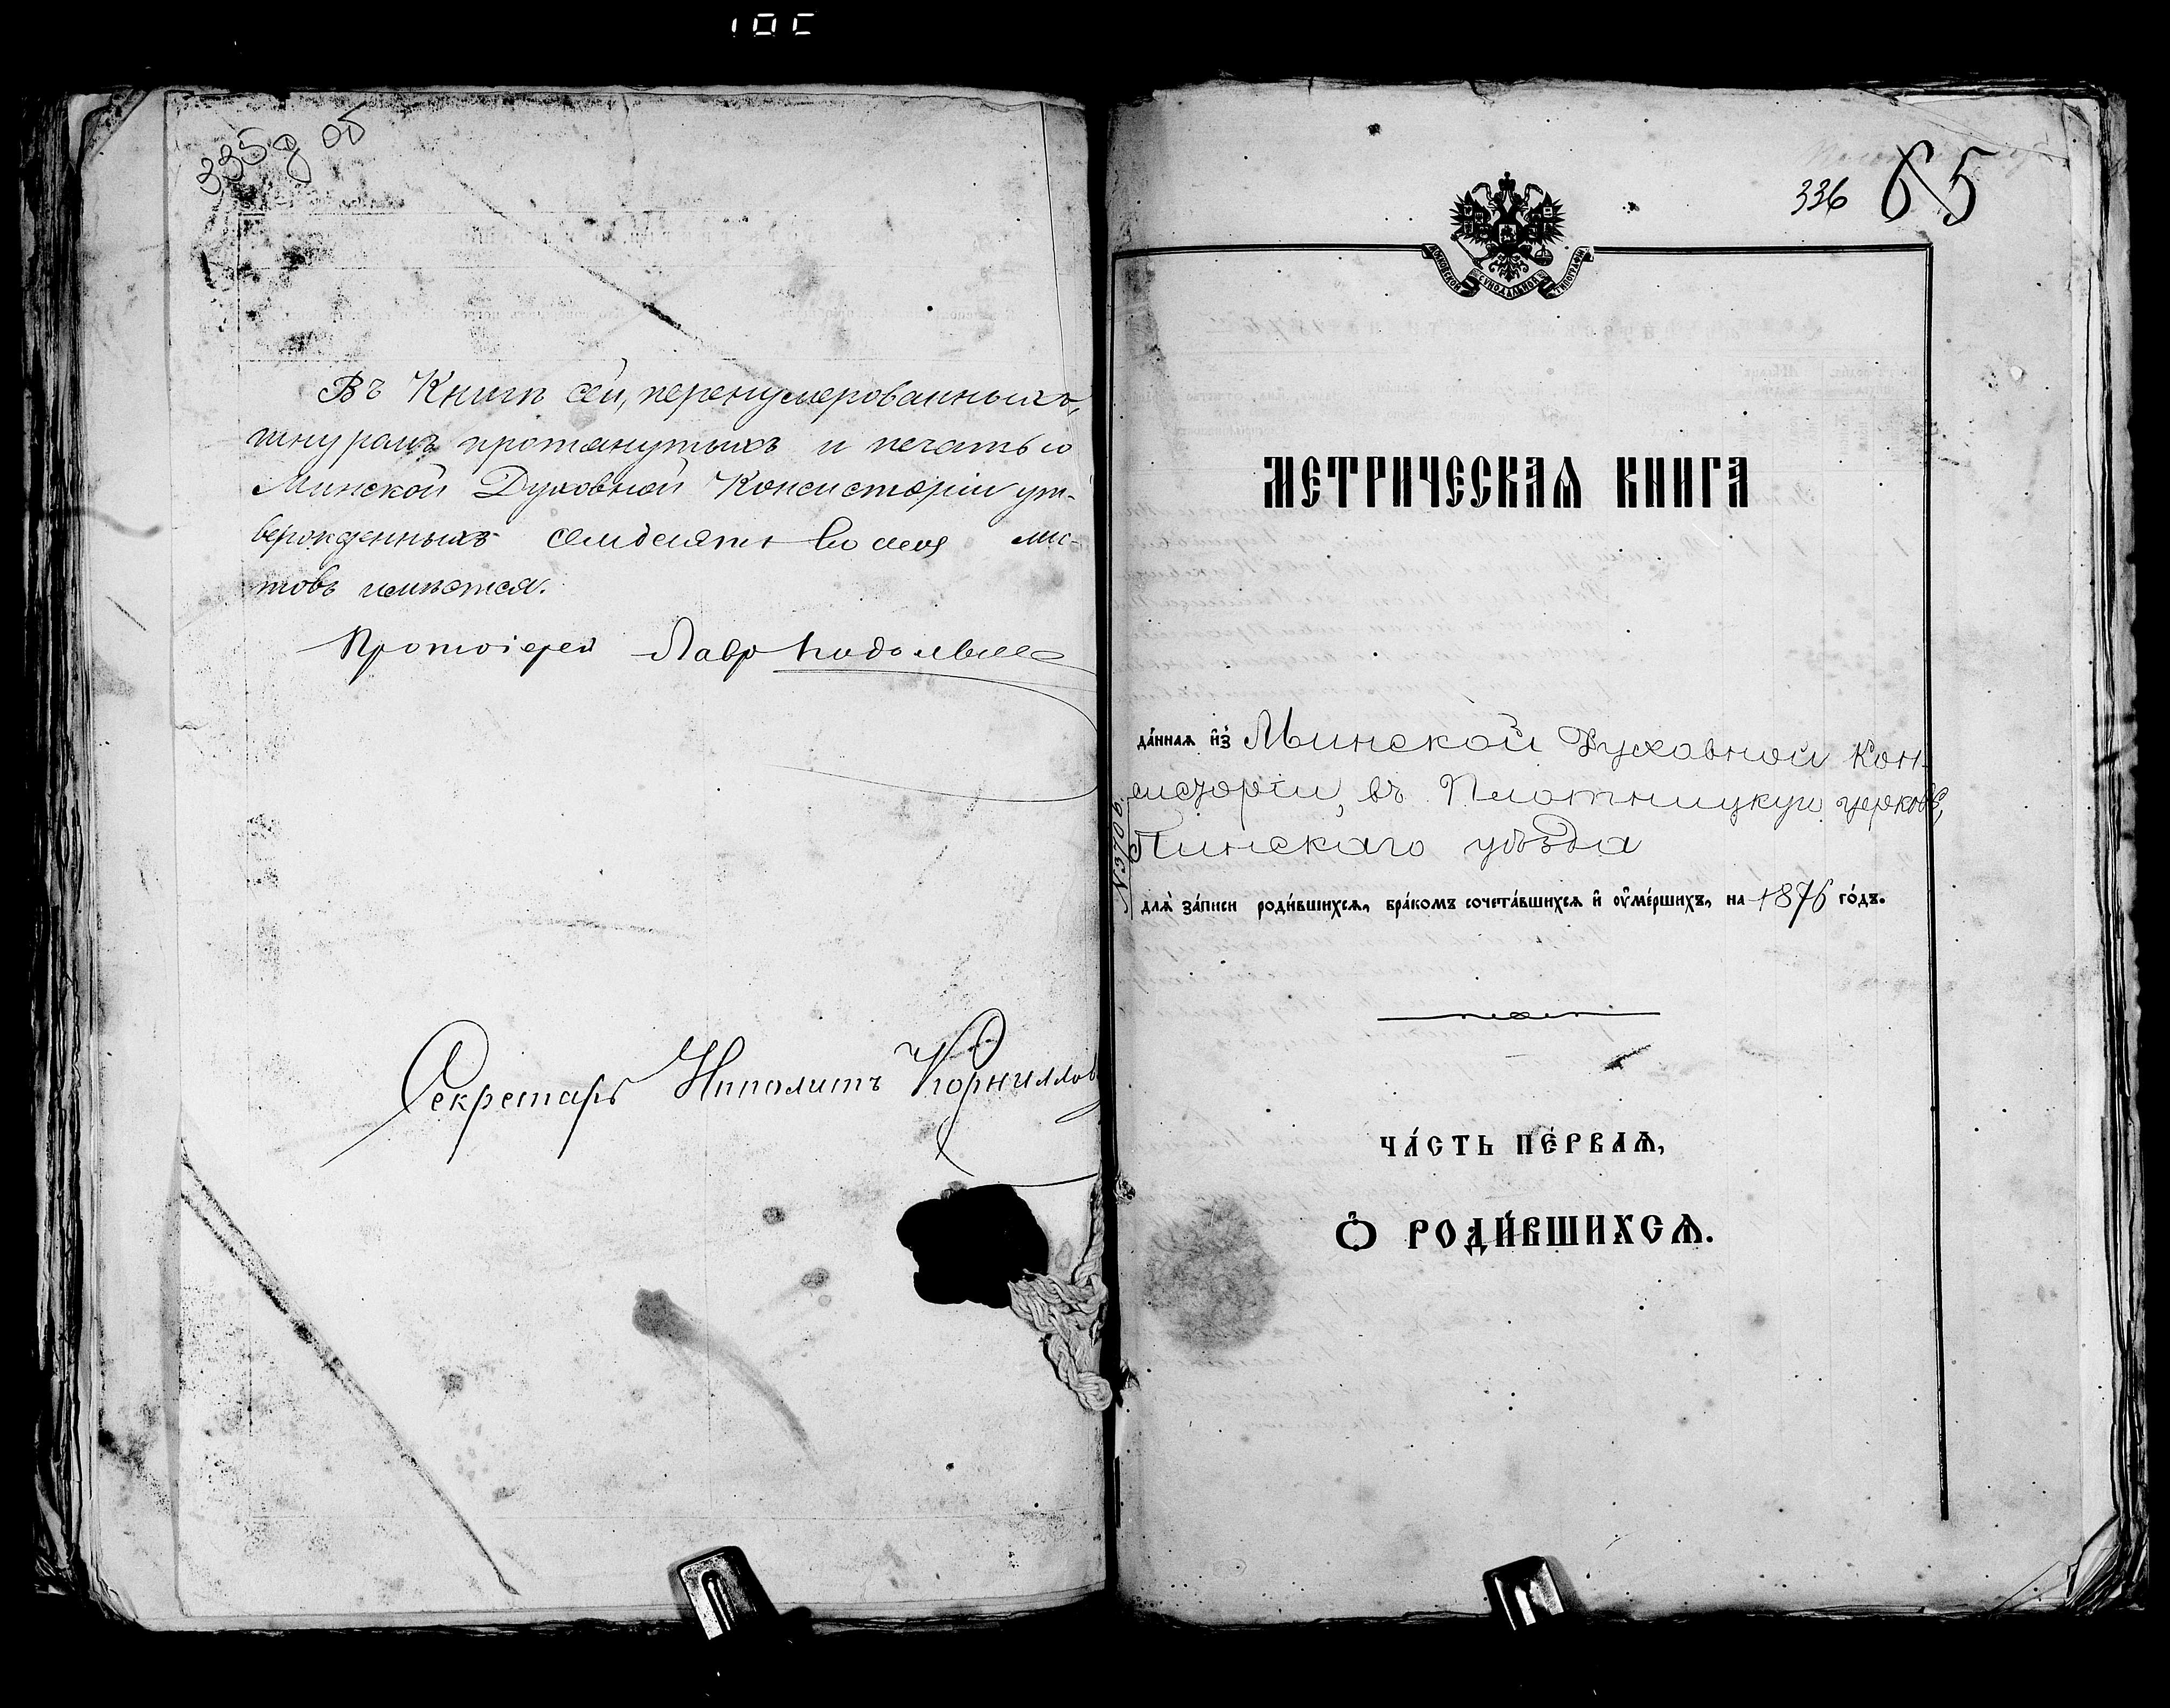 335 д об
Въ Книгѣ сей, перенумерованныхъ,
шнуромъ протянутыхъ и печатью
Минской Духовной Консисторіи ут-
вержденныхъ семдесятъ восемь лис-
товъ имѣется.
Протоіерей Лавр
Секретарь Ипполитъ Корниллов
336 65
МОСКОВСКОЙ СѴНОДАЛЬНОЙ ТИПОГРАФІИ
МЕТРИЧЕСКАѦ КНИГА
да́ннаѧ и҆з̾ Минской Духовной Кон-
систоріи, въ Плотницкую церковь,
Пинскаго уѣзда
N 3706.
длѧ̀ за́писи роди́вшихсѧ, бра́комъ сочета́вшихсѧ и҆ ᲂу҆ме́ршихъ, на 1876 го́дъ.
ЧА́СТЬ ПЕ́РВАѦ,
Ѽ РОДИ́ВШИХСѦ.